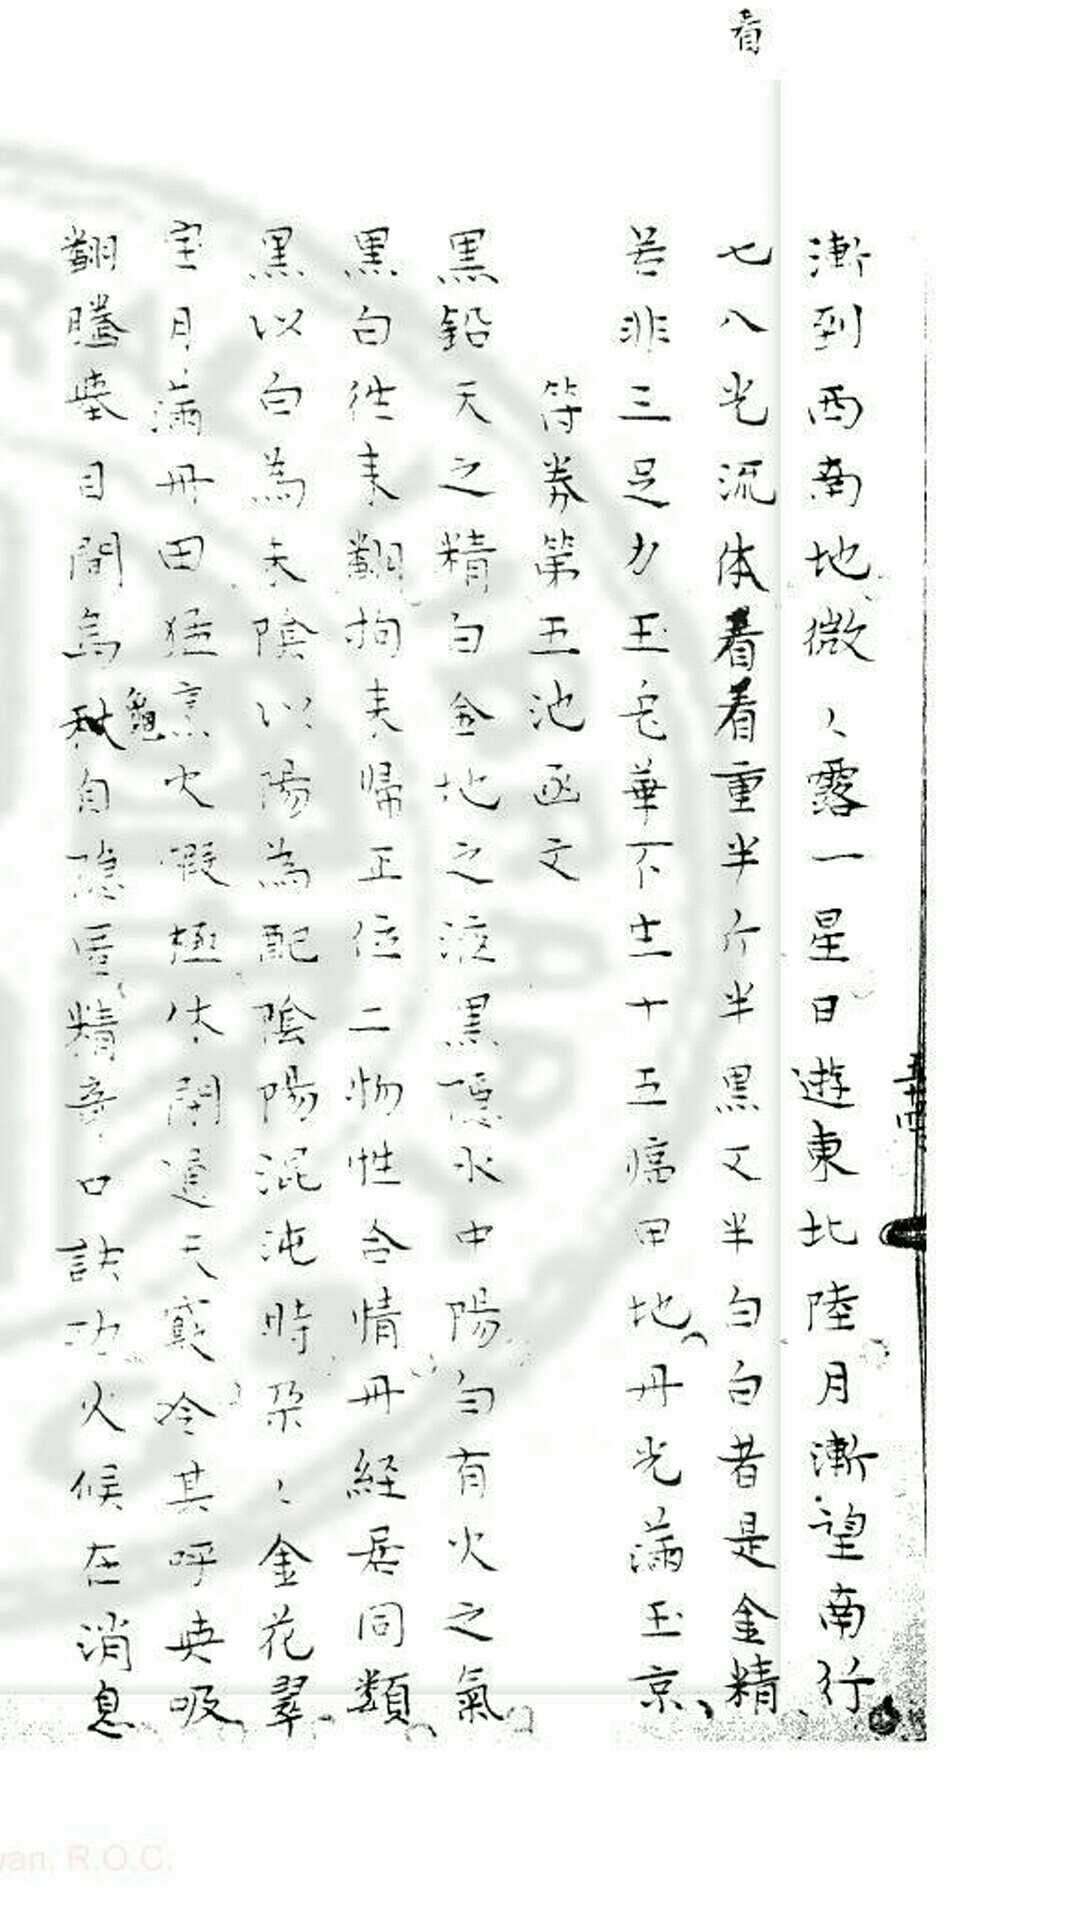 看
五十四
漸到西南地微々露一星日遊東北陸月漸望南行
七八光流体看看重半斤半黑又半白白者是金精
若非三足力玉毛華不生十五痛甲地丹光滿玉京
符券第五池函文
黑鉛天之精白金地之液黑隱水中陽白有火之氣
黑白徃来翻拘夫歸正位二物性合情丹経居同類
黑以白為夫陰以陽為配陰陽混沌時朶々金花翠
宝月滿丹田猛烹火假極休開通天竅冷其呼與吸
翻騰壺日間烏龜自隱匿精奇口訣功火候在消息
wan, R.O.C.